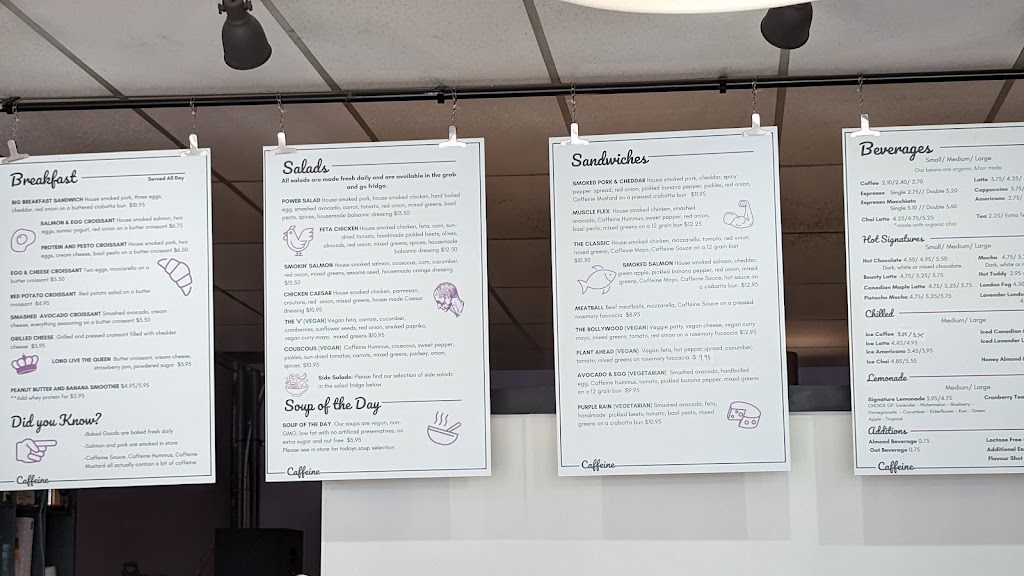 Breakfast
Served All Day
BIG BREAKFAST SANDWICH House smoked pork, three eggs,
cheddar, red onion on a buttered ciabatta bun $10.95
SALMON & EGG CROISSANT House smoked salmon, two
eggs, sumac yogurt, red onion on a butter croissant $6.75
PROTEIN AND PESTO CROISSANT House smoked pork, two
eggs, cream cheese, basil pesto on a butter croissant $6.50
EGG & CHEESE CROISSANT Two eggs, mozzarella on a
butter croissant $5.50
RED POTATO CROISSANT Red potato salad on a butter
croissant $4.95
SMASHED AVOCADO CROISSANT Smashed avocado, cream
cheese, everything seasoning on a butter croissant $5.50
GRILLED CHEESE Grilled and pressed croissant filled with cheddar
cheese $3.95
LONG LIVE THE QUEEN Butter croissant, cream cheese,
strawberry jam, powdered sugar $3.95
PEANUT BUTTER AND BANANA SMOOTHIE $4.95/5.95
**Add whey protein for $2.95
Did you Know?
-Baked Goods are baked fresh daily
-Salmon and pork are smoked in store
-Caffeine Sauce, Caffeine Hummus, Caffeine
Mustard all actually contain a bit of caffeine
Caffeine
Salads
All salads are made fresh daily and are available in the grab
and go fridge.
POWER SALAD House smoked pork, house smoked chicken, hard boiled
egg, smashed avocado, carrot, tomato, red onion, mixed greens, basil
pesto, spices, housemade balsamic dressing $13.50
FETA CHICKEN House smoked chicken, feta, corn, sun-
dried tomato, handmade pickled beets, olives,
almonds, red onion, mixed greens, spices, housemade
balsamic dressing $12.50
SMOKIN' SALMON House smoked salmon, couscous, corn, cucumber,
red onion, mixed greens, sesame seed, housemade orange dressing
$13.50
CHICKEN CAESAR House smoked chicken, parmesan,
croutons, red onion, mixed greens, house made Caesar
dressing $10.95
THE 'V' (VEGAN) Vegan feta, carrots, cucumber,
cranberries, sunflower seeds, red onion, smoked paprika,
vegan curry mayo, mixed greens $10.95
COUSCOUS (VEGAN) Caffeine Hummus, couscous, sweet pepper,
pickles, sun-dried tomatoes, carrots, mixed greens, parsley, onion,
spices $10.95
Side Salads: Please find our selection of side salads
in the salad fridge below
Soup of the Day
SOUP OF THE DAY Our soups are vegan, non-
GMO, low fat with no artificial preservatives, no
extra sugar and nut free $5.95
Please see in store for todays soup selection
Caffeine
Sandwiches
SMOKED PORK & CHEDDAR House smoked pork, cheddar, spicy
pepper spread, red onion, pickled banana pepper, pickles, red onion,
Caffeine Mustard on a pressed ciabatta bun $11.95
MUSCLE FLEX House smoked chicken, smashed
avocado, Caffeine Hummus, sweet pepper, red onion,
basil pesto, mixed greens on a 12 grain bun $12.25
THE CLASSIC House smoked chicken, mozzarella, tomato, red onion,
mixed greens, Caffeine Mayo, Caffeine Sauce on a 12 grain bun
$10.50
SMOKED SALMON House smoked salmon, cheddar,
green apple, pickled banana pepper, red onion, mixed
greens, Caffeine Mayo, Caffeine Sauce, hot sauce on
a ciabatta bun $12.95
MEATBALL Beef meatballs, mozzarella, Caffeine Sauce on a pressed
rosemary focaccia $8.95
THE BOLLYWOOD (VEGAN) Veggie patty, vegan cheese, vegan curry
mayo, tomato, mixed greens, red onion on a rosemary focaccia $12.95
PLANT AHEAD (VEGAN) Vegan feta, hot pepper spread, cucumber,
tomato, mixed greens on rosemary foccacia $ 9.95
AVOCADO & EGG (VEGETARIAN) Smashed avocado, hardboiled
egg, Caffeine Hummus, tomato, pickled banana pepper, mixed greens
on a 12 grain bun $9.95
PURPLE RAIN (VEGETARIAN) Smashed avocado, feta,
handmade pickled beets, tomato, basil pesto, mixed
greens on a ciabatta bun $10.95
Caffeine
Beverages
Small/ Medium/ Large
Our beans are organic &fair trade
Coffee 2.10/2.40/ 2.70
Espresso Single 2.75/ / Double 3.20
Espresso Macchiato
Single 5.10 / Double 3.60
Chai Latte 4.25/4.75/5.25
*made with organic chai
Latte 3.75/ 4.25/
Cappuccino 3.75/
Americano 2.75/
Tea 2.25/ Extra
Hot Signatures
Small/ Medium/ Large
Hot Chocolate 4.50/ 4.95/ 5.50
Dark, white or mixed chocolate
Bounty Latte 4.75/ 5.25/ 5.75
Canadian Maple Latte 4.75/ 5.25/ 5.75
Pistachio Mocha 4.75/ 5.25/5.75
Mocha 4.75/
Dark, white or
Hot Toddy 2.95
London Fog 4.50
Lavender London
Chilled
Medium/ Large
Ice Coffee 3.25/3.75
Ice Latte 4.45/4.95
Ice Americano 3.45/3.95
Ice Chai 4.85/5.55
Iced Canadian
Iced Lavender
Honey Almond
Lemonade
Medium/ Large
Signature Lemonade 3.95/4.75
CHOICE OF: Lavender - Watermelon - Blueberry -
Pomegranate - Cucumber - Elderflower - Kiwi - Green
Apple - Tropical
Cranberry Tea
Additions
Almond Beverage 0.75
Oat Beverage 0.75
Lactose Free
Additional
Flavour Shot
Caffeine